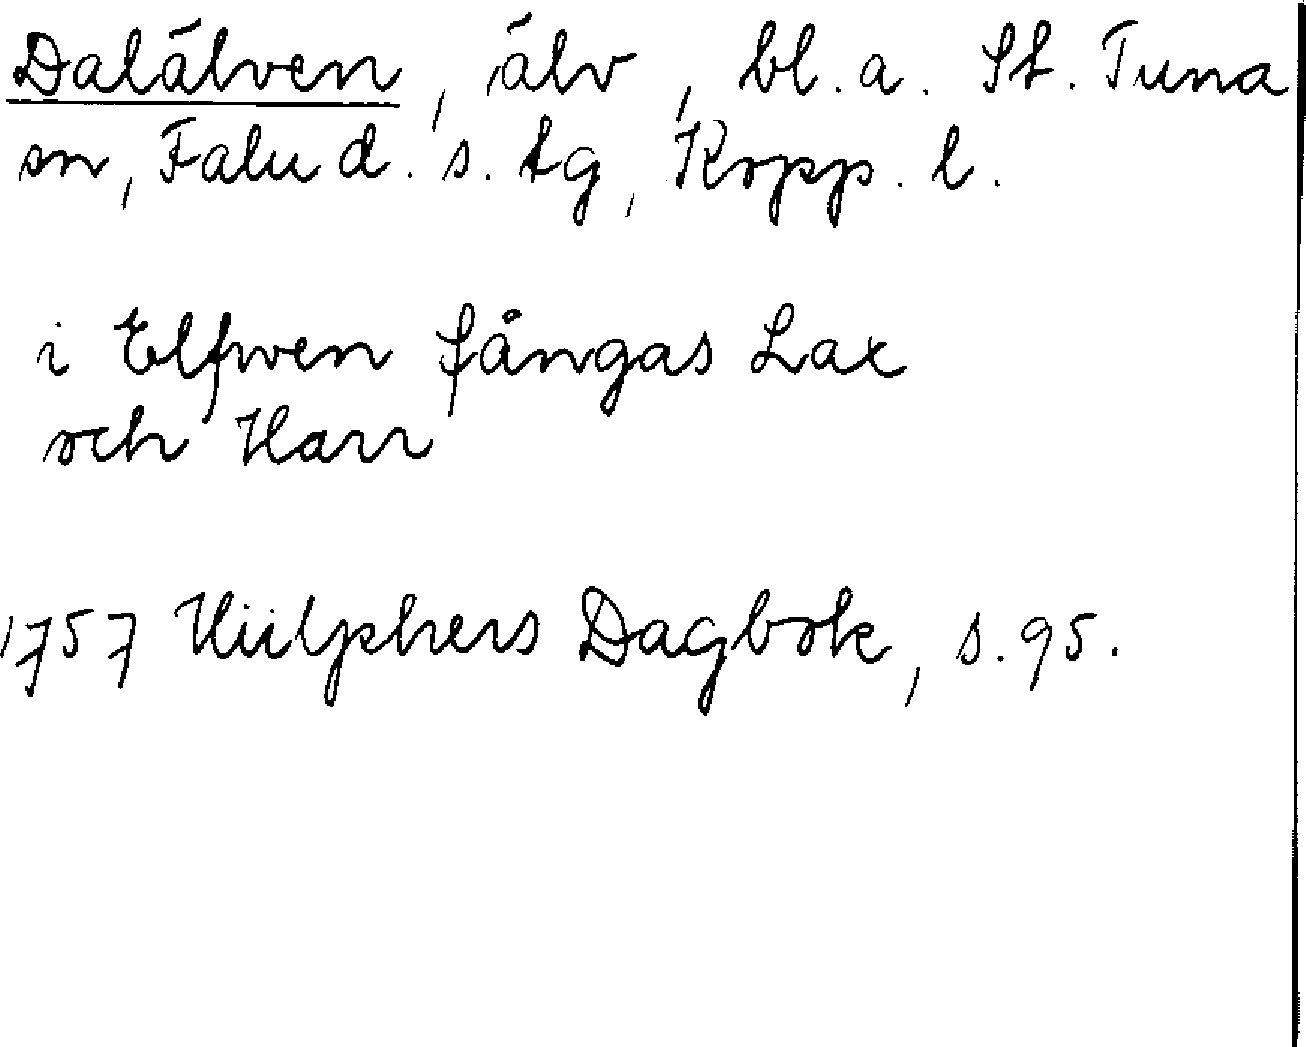 Dalälven, älv, bl. a. St. Tuna
sn, Falu d. s. tg, Kopp. l.
i Elfwen fångas Lax
och Harr
1757 Hülphers Dagbok, s. 95.